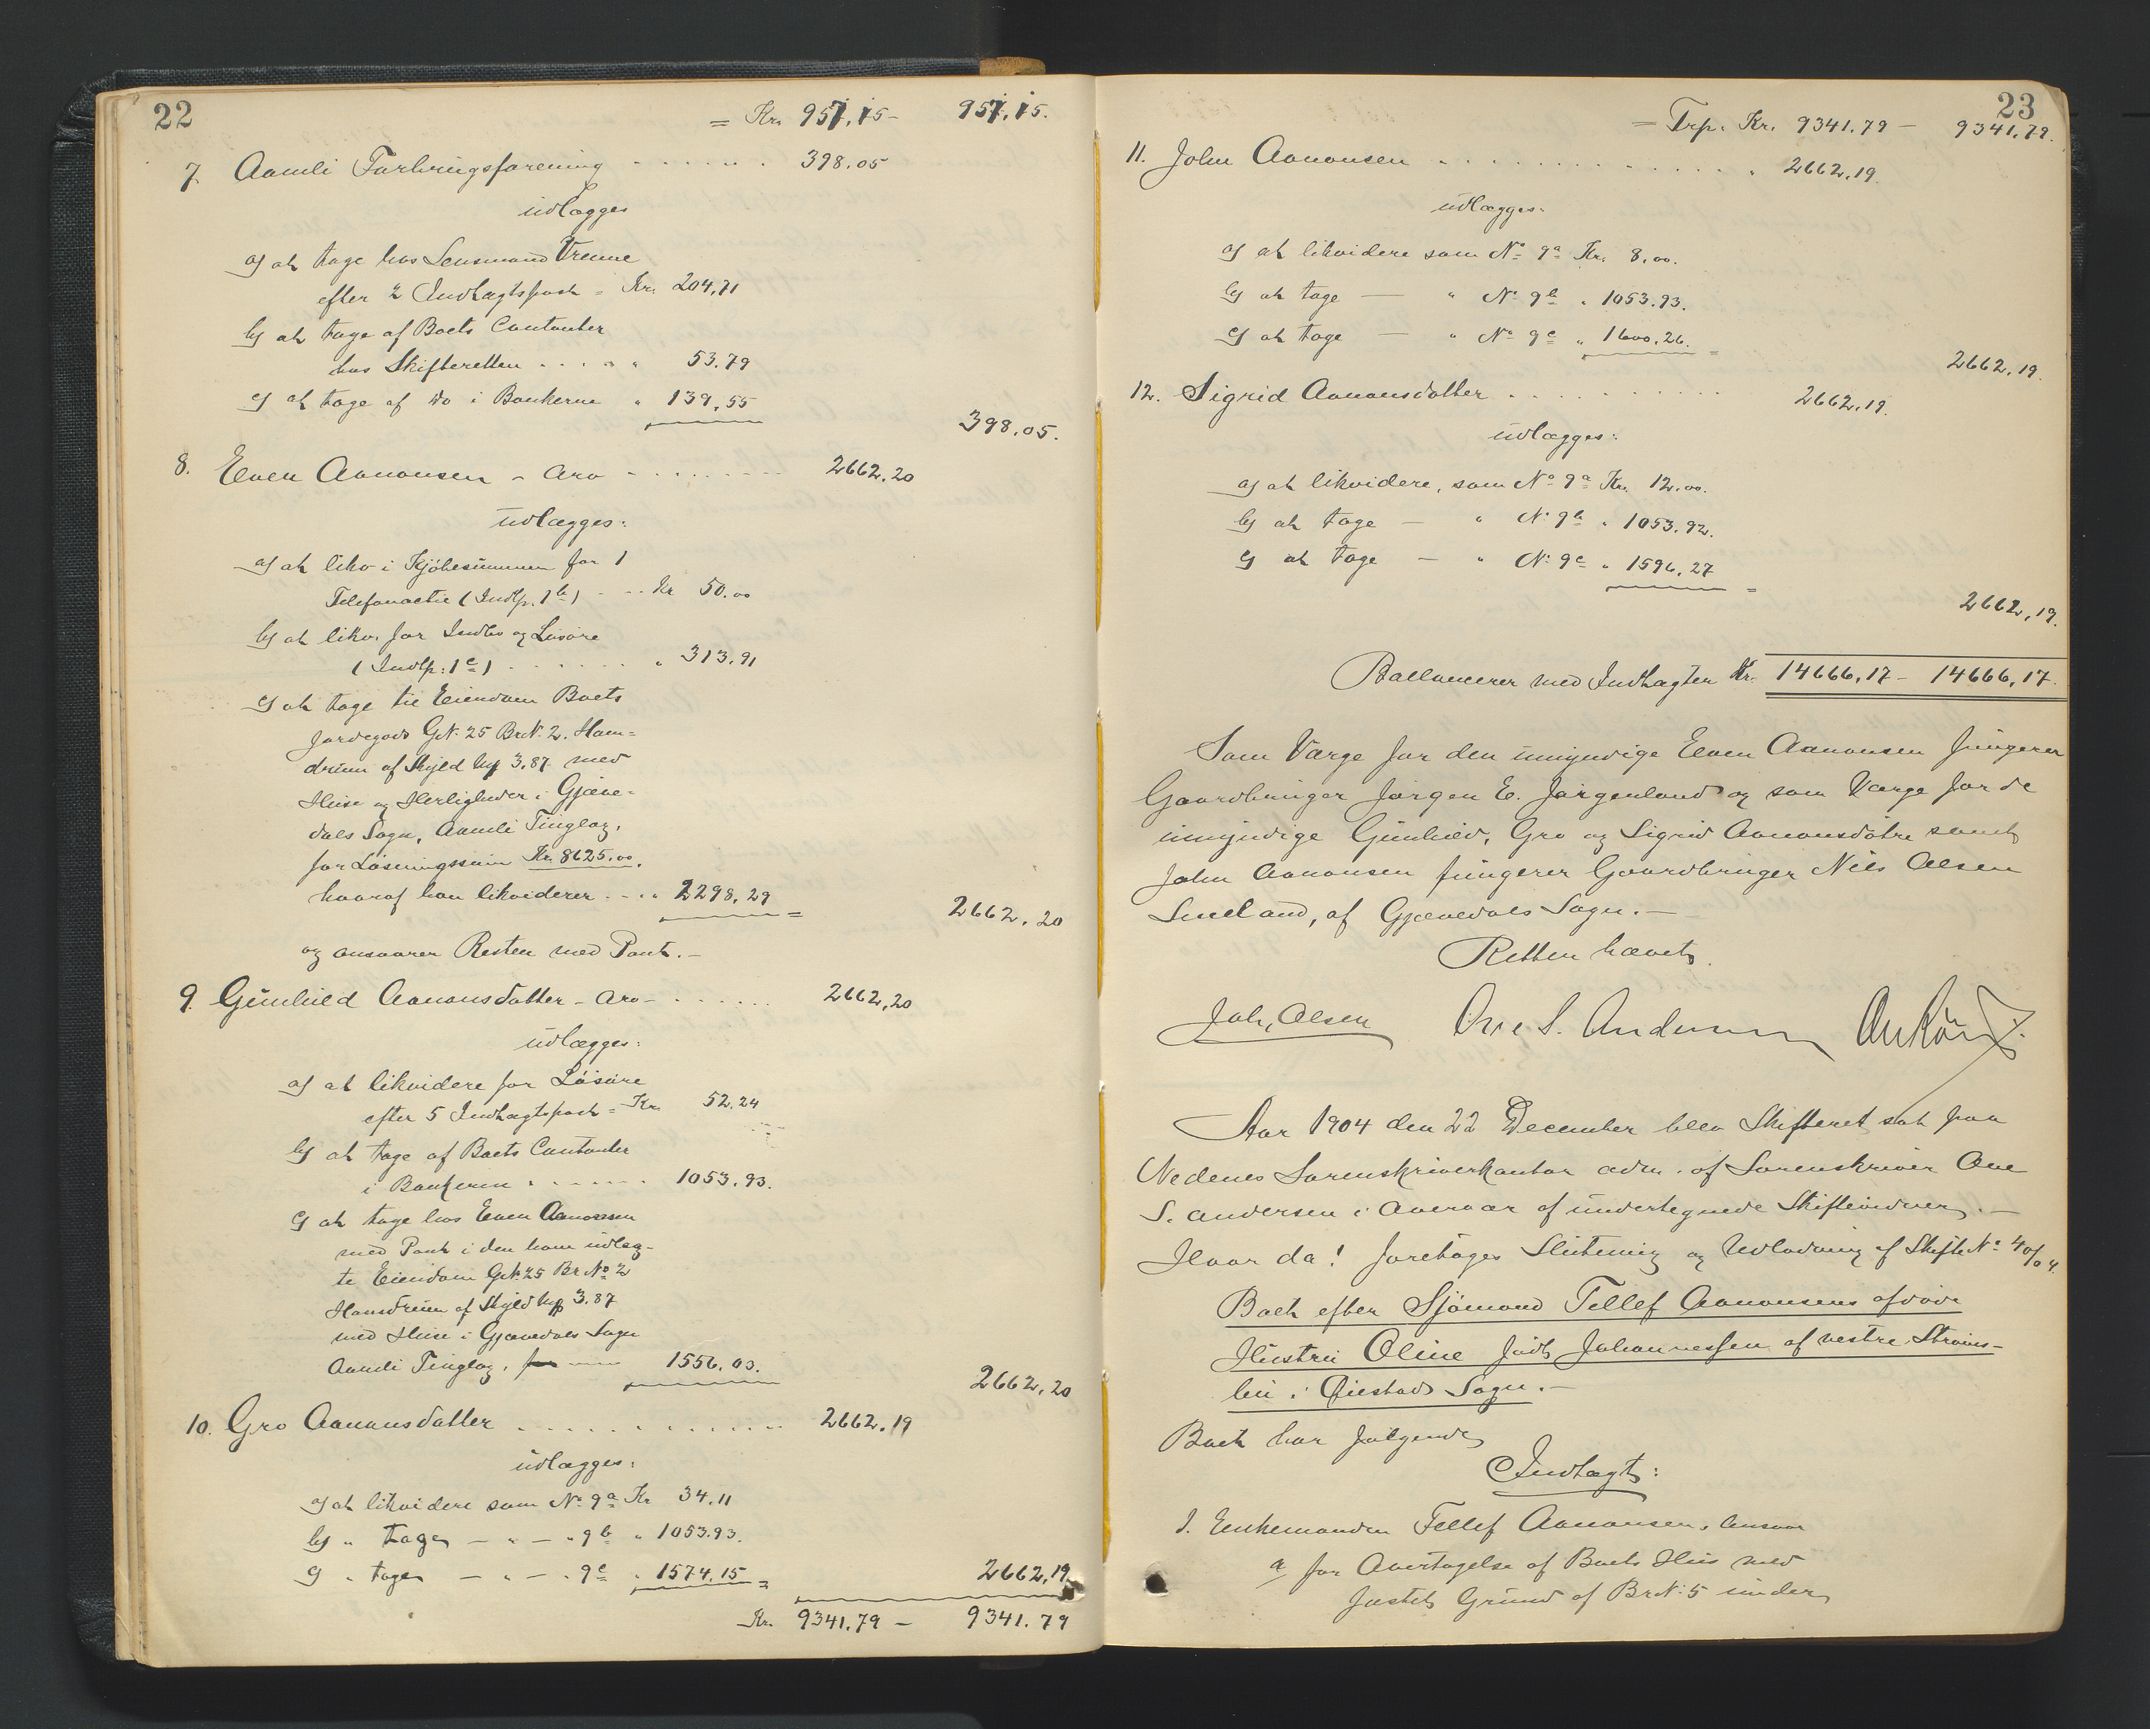 22
= Kr. 957,15 - 957,15.
7. Aamli Forbrugsforening - - - - - - 398.05
udlægges
a) at tage hos Lensmand Vrenne
efter 2 Indtægtspost = Kr. 204,71
b) at tage af Boets Contanter
hos Skifteretten . . . . . " 53.79
c) at tage af do i Bankerne " 139,55
398.05.
8. Even Aanonsen - Arv - - - - - - - - 2662,20
udlægges:
a) at likv i Kjøbesummen for 1
Telefonactie (Indtp. 1b) - - - Kr 50.00
b) at likv. for Indbo og Løsøre
(Indtp: 1c) . . . . . . . " 313,91
c) at tage til Eiendom Boets
Jordegods G.N. 25 BrN. 2. Ham=
dreim af Skyld Mk 3.87 med
Huse og Herligheder i Gjøve=
dals Sogn, Aamli Tinglag,
for Løsningssum Kr. 8625.00,
hvoraf han likviderer . - . " 2298,29
2662,20
og ansvarer Resten med Pant. -
9. Gunhild Aanonsdatter - Arv - . . . . . . 2662,20
udlægges:
a) at likvidere for Løsøre
efter 5 Indtægtspost = Kr. 52.24
b) at tage af Boets Contanter
i Bankerne . . . . . . . 1053.93.
c) at tage hos Even Aanonsen
med Pant i den ham udlag-
te Eiendom G.N. 25 Br No 2
Hamdreim af Skyld Mk 3.87
med Huse i Gjøvedals Sogn
Aamli Tinglag, for 1556,03.
2662,20
10. Gro Aanonsdatter . . . . . . . . . . . . 2662.19
udlægges:
a) at likvidere som No 9a Kr 34.11
b) " tage - " - " 9b " 1053.93.
c) " tage - " - " 9c " 1574.15 =
2662,19.
Kr. 9341.79 - 9341.79
23
= Trp. Kr. 9341.79 - 9341,79.
11. John Aanonsen . . . . . . . . . . . . . 2662,19.
udlægges:
a) at likvidere som No 9a Kr. 8,00.
b) at tage - " No 9b " 1053.93.
c) at tage - " No 9c " 1600,26. =
2662,19.
12. Sigrid Aanonsdatter . . . . . . . . . . 2662,19.
udlægges:
a) at likvidere, som No 9a Kr. 12.00.
b) at tage - " No 9b " 1053.92.
c) at tage - " No 9c " 1596,27 =
2662,19.
Ballancerer med Indtægten Kr. 14666,17 - 14666,17.
Som Værge for den umyndige Even Aanonsen fungerer
Gaardbruger Jørgen E. Jørgenland og som Værge for de
umyndige Gunhild, Gro og Sigrid Aanonsdøtre samt
John Aanonsen fungerer Gaardbruger Nils Olsen
Smeland, af Gjøvedals Sogn. -
Retten hævet.
Joh. Olsen Ove S. Andersen
Aar 1904 den 22 December blev Skifteret sat paa
Nedenes Sorenskriverkontor adm. af Sorenskriver Ove
S. Andersen i Overvær af undertegnede Skiftevidner. -
Hvor da! foretoges Slutning og Udlodning af Skifte No 40/04.
Boet efter Sjømand Tellef Aanonsens afdøde
Hustru Oline født Johannessen af vestre Strøms-
bu i Øiestad Sogn. -
Boet har følgende
Indtægt:
1. Enkemanden Tellef Aanonsen, Ansvar
a for Overtagelse af Boets Hus med
fæstet Grund af BrN: 5 under